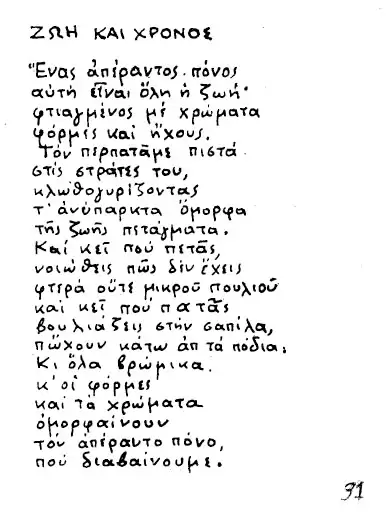 ΖΩΗ ΚΑΙ ΧΡΟΝΟΣ
Ἕνας ἀπέραντος πόνος
αὐτή εἶναι ὅλη ἡ ζωή·
φτιαγμένος μέ χρώματα
φόρμες καί ἤχους.
Τόν περπατᾶμε πιστά
στίς στράτες του,
κλωθογυρίζοντας
τ' ἀνύπαρκτα ὄμορφα
τῆς ζωῆς πετάγματα.
Καί κεῖ πού πετᾶς,
νοιώθεις πῶς δέν ἔχεις
φτερά οὔτε μικροῦ πουλιοῦ
καί κεῖ πού πατᾶς
βουλιάζεις στήν σαπίλα,
πὤχουν κάτω ἀπ τά πόδια.
Κι ὅλα βρώμικα.
κ' οἱ φόρμες
καί τά χρώματα
ὀμορφαίνουν
τόν ἀπέραντο πόνο,
πού διαβαίνουμε.
31